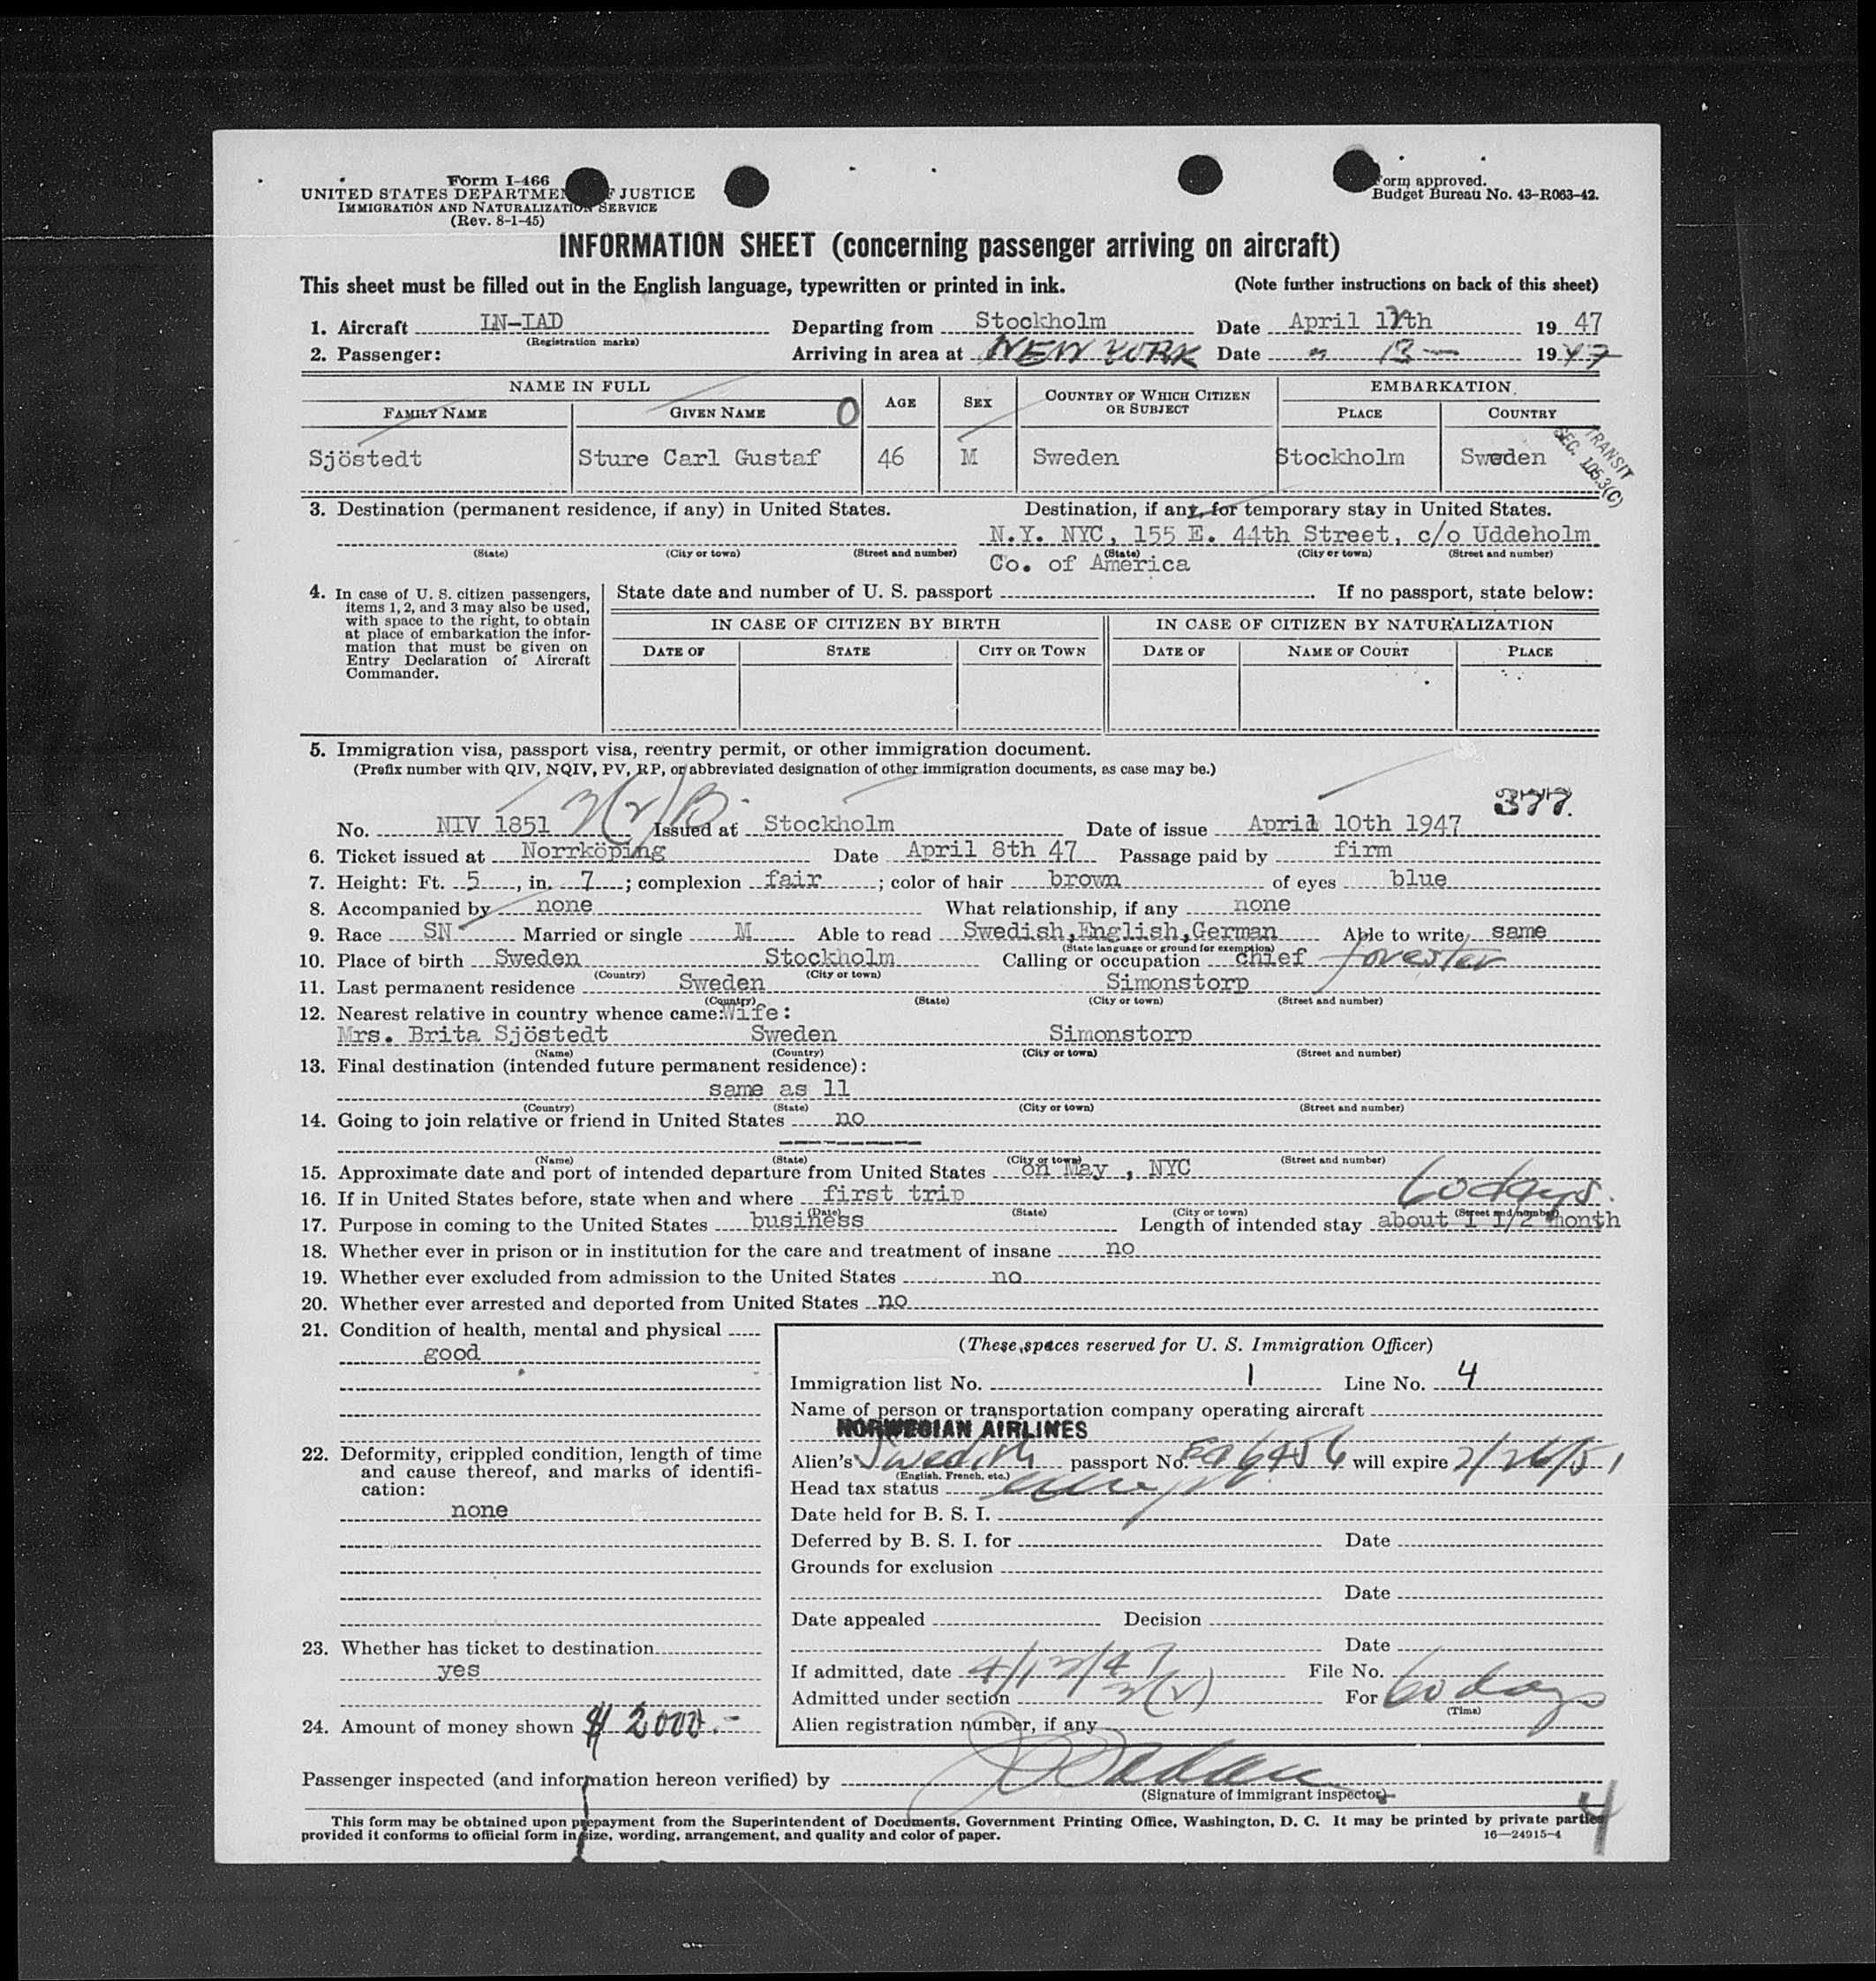 Form I-466
UNITED STATES DEPARTMENT OF JUSTICE
IMMIGRATION AND NATURALIZATION SERVICE
(Rev. 8-1-45)
Form approved.
Budget Bureau No. 43-R063-42.
INFORMATION SHEET (concerning passenger arriving on aircraft)
This sheet must be filled out in the English language, typewritten or printed in ink. (Note further instructions on back of this sheet)
1. Aircraft LN-IAD Departing from Stockholm Date April 12th 19 47
(Registration marks)
2. Passenger: Arriving in area at NEW YORK Date " 13 19 47
NAME IN FULL AGE SEX COUNTRY OF WHICH CITIZEN OR SUBJECT EMBARKATION
FAMILY NAME GIVEN NAME O PLACE COUNTRY
Sjöstedt Sture Carl Gustaf 46 M Sweden Stockholm Sweden
TRANSIT
SEC. 105.3(C)
3. Destination (permanent residence, if any) in United States. Destination, if any, for temporary stay in United States.
N.Y. NYC, 155 E. 44th Street, c/o Uddeholm
(State) (City or town) (Street and number) (State) (City or town) (Street and number)
Co. of America
4. In case of U. S. citizen passengers, items 1, 2, and 3 may also be used, with space to the right, to obtain at place of embarkation the information that must be given on Entry Declaration of Aircraft Commander.
State date and number of U. S. passport If no passport, state below:
IN CASE OF CITIZEN BY BIRTH IN CASE OF CITIZEN BY NATURALIZATION
DATE OF STATE CITY OR TOWN DATE OF NAME OF COURT PLACE
5. Immigration visa, passport visa, reentry permit, or other immigration document.
(Prefix number with QIV, NQIV, PV, RP, or abbreviated designation of other immigration documents, as case may be.)
3(2) B 377.
No. NIV 1851 Issued at Stockholm Date of issue April 10th 1947
6. Ticket issued at Norrköping Date April 8th 47 Passage paid by firm
7. Height: Ft. 5, in. 7; complexion fair; color of hair brown of eyes blue
8. Accompanied by none What relationship, if any none
9. Race SN Married or single M Able to read Swedish, English, German Able to write same
(State language or ground for exemption)
10. Place of birth Sweden Stockholm Calling or occupation chief forester
(Country) (City or town)
11. Last permanent residence Sweden Simonstorp
(Country) (State) (City or town) (Street and number)
12. Nearest relative in country whence came: Wife:
Mrs. Brita Sjöstedt Sweden Simonstorp
(Name) (Country) (City or town) (Street and number)
13. Final destination (intended future permanent residence):
same as 11
(Country) (State) (City or town) (Street and number)
14. Going to join relative or friend in United States no
(Name) (State) (City or town) (Street and number)
15. Approximate date and port of intended departure from United States on May , NYC
16. If in United States before, state when and where first trip 60 days.
(Date) (State) (City or town) (Street and number)
17. Purpose in coming to the United States business Length of intended stay about 1 1/2 month
18. Whether ever in prison or in institution for the care and treatment of insane no
19. Whether ever excluded from admission to the United States no
20. Whether ever arrested and deported from United States no
21. Condition of health, mental and physical
good
22. Deformity, crippled condition, length of time and cause thereof, and marks of identification:
none
23. Whether has ticket to destination
yes
24. Amount of money shown $ 2000.-
(These spaces reserved for U. S. Immigration Officer)
Immigration list No. 1 Line No. 4
Name of person or transportation company operating aircraft
NORWEGIAN AIRLINES
Alien's Swedish passport No. will expire 2/26/51
(English, French, etc.)
Head tax status
Date held for B. S. I.
Deferred by B. S. I. for Date
Grounds for exclusion
Date
Date appealed Decision
Date
If admitted, date 4/13/47 File No.
Admitted under section 3(2) For 60 days
(Time)
Alien registration number, if any
Passenger inspected (and information hereon verified) by
(Signature of immigrant inspector)
4
This form may be obtained upon prepayment from the Superintendent of Documents, Government Printing Office, Washington, D. C. It may be printed by private parties
provided it conforms to official form in size, wording, arrangement, and quality and color of paper. 16—24915-4